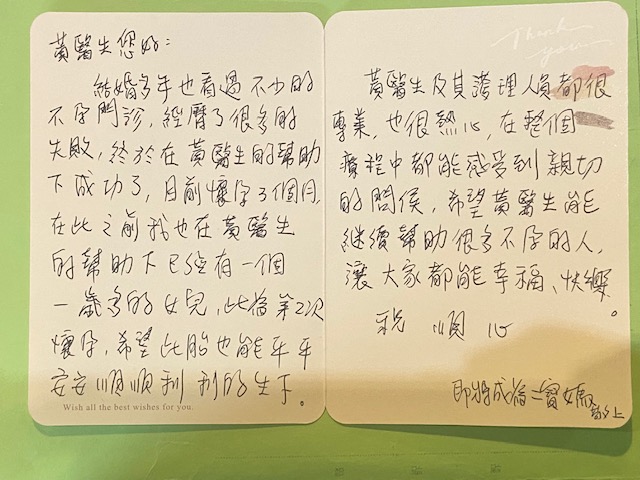 黃醫生您好：
結婚多年也看過不少的
不孕門診，經曆了很多的
失敗，終於在黃醫生的幫助
下成功了，目前懷孕3個月，
在此之前我也在黃醫生
的幫助下已經有一個
一歲多的女兒，此為第2次
懷孕，希望此胎也能平平
安安順順利利的生下。
Wish all the best wishes for you.
Thank you
黃醫生及其護理人員都很
專業，也很熱心，在整個
療程中都能感受到親切
的問侯，希望黃醫生能
繼續幫助很多不孕的人，
讓大家都能幸福、快樂。
祝 順心
即將成為二寶媽 上